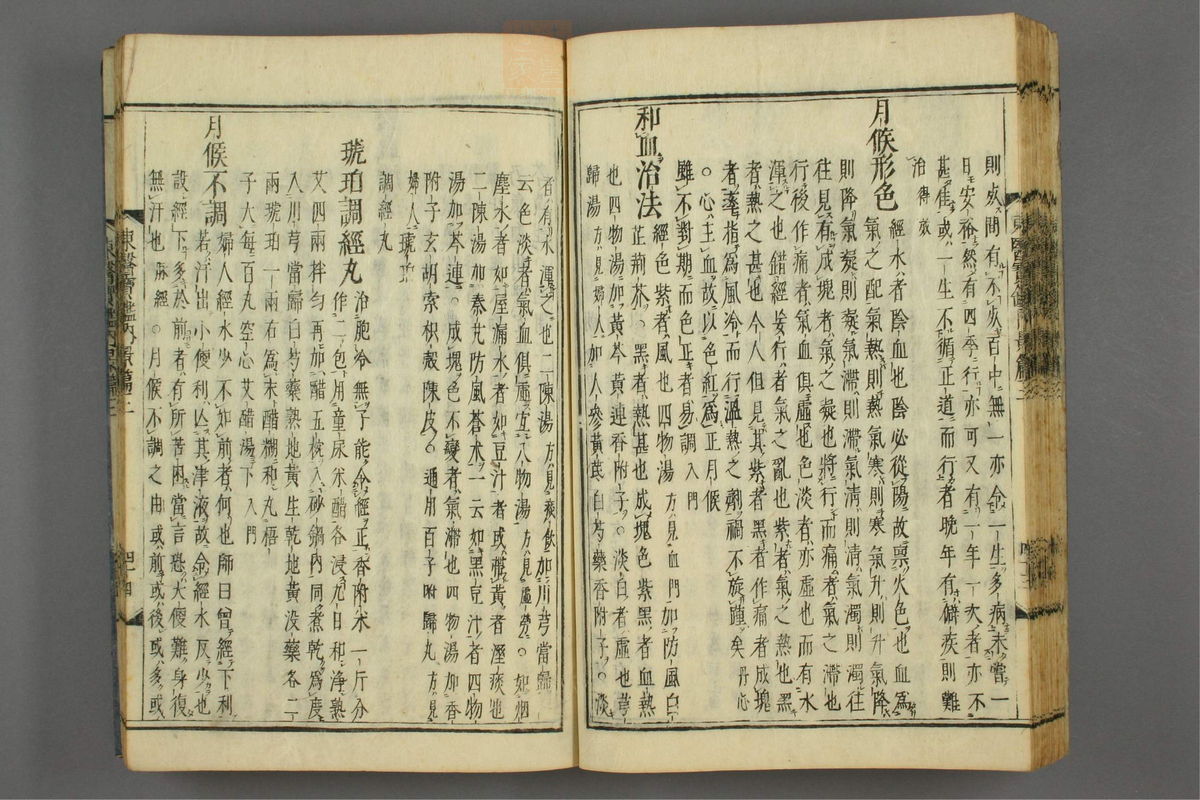 則次間有不以百中無一亦令一生多病未嘗一
日安裕然有四季一行亦可又有一年一次者亦不
甚隹或一生不循正道而行者晚年有癖疾則難
治得效
月候形色經水者陰血也陰必從陽故禀火色也血爲
氣之配氣熱則熱氣寒則寒氣升則升氣降
則降氣凝則凝氣滯則滯氣清則清氣濁則濁往
往見有成塊者氣之凝也將行而痛者氣之滯也
行後作痛者氣血俱虛也色淡者亦虛也而有水
渾之也錯經妄行者氣之亂也紫者氣之熱也黑
者熱之甚也今人但見其紫者黑者作痛者成塊
者率指爲風冷而行溫熱之劑禍不旋踵矣丹心
○心主血故以色紅爲正月候
雖不對期而色正者易調入門
和血治法經色紫者風也四物湯方見血門加防風白
芷荊芥○黑者熱甚也成塊色紫黑者血熱
也四物湯加黃芩黃連香附子○淡白者虛也芎
歸湯方見婦人加人參黃芪白芍藥香附子○淡
者有水渾之也二陳湯方見痰飮加川芎當歸
一云色淡者氣血俱虛宜八物湯方見虛勞○如烟
塵水者如屋漏水者如豆汁者或帶黃者濕痰也
二陳湯加秦艽防風蒼朮一云如黑豆汁者四物
湯加芩連○成塊色不變者氣滯也四物湯加香
附子玄胡索枳殼陳皮○通用百子附歸丸方見
婦人琥珀
調經丸
琥珀調經丸治胞冷無子能令經正香附米一斤分
作二包用童尿米醋各浸九日和淨熟
艾四兩拌勻再加醋五椀入砂鍋內同煮乾爲度
入川芎當歸白芍藥熟地黃生乾地黃沒藥各二
兩琥珀一兩右爲末醋糊和丸梧
子大每百丸空心艾醋湯下入門
月候不調婦人經水少不如前者何也師曰曾經下利
若汗出小便利亡其津液故令經水反少也
設經下多於前者有所苦困當言恐大便難身復
無汗也脉經○月候不調之由或前或後或多或
東醫寶鑑內景篇二
四十四